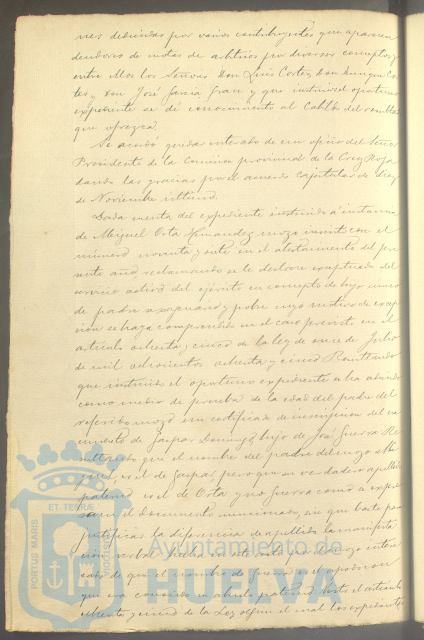 nes deducidas por varios contribuyentes que aparecen
deudores de cuotas de arbitrios por diversos conceptos,
entre ellos los Señores Don Luis Cortés, Don
tes y Don José García y que instruido el oportuno
expediente se dé conocimiento al Cabildo del resultado
que ofrezca.
Se acordó quedar enterado de un oficio del Señor
Presidente de la Comisión provincial de la Cruz Roja
dando las gracias por el acuerdo Capitular de diez
de Noviembre último.
Dada cuenta del expediente instruido a instancia
de Miguel Orta Hernandez mozo inscrito con el
número noventa y siete en el alistamiento del pre-
sente año, reclamando se le declare exceptuado del
servicio activo del ejército en concepto de hijo único
de padre sexagenario y pobre cuyo motivo de excep-
ción se haya comprendido en el caso previsto en el
artículo ochenta y cinco de la ley de once de Julio
de mil ochocientos ochenta y cinco Resultando
que instruido el oportuno expediente se ha aducido
como medio de prueba de la edad del padre del
referido mozo un certificado de inscripcion del na-
cimiento de Gaspar Domingo, hijo de José Guerra Re-
sultando que el nombre del padre del mozo
es el de Gaspar pero que su verdadero apellido
paterno es el de Orta y no Guerra como se expre-
sa en el documento mencionado, sin que baste para
justificar la diferencia de apellido la manifesta-
ción verbal hecha
sado de que el nombre de Guerra es el apodo con
que era conocido su abuelo paterno Visto el artículo
ochenta y cinco de la Ley segun el cual los expedientes
PORTUS MARIS ET TERRAE CUSTODIA
Ayuntamiento de
HUELVA